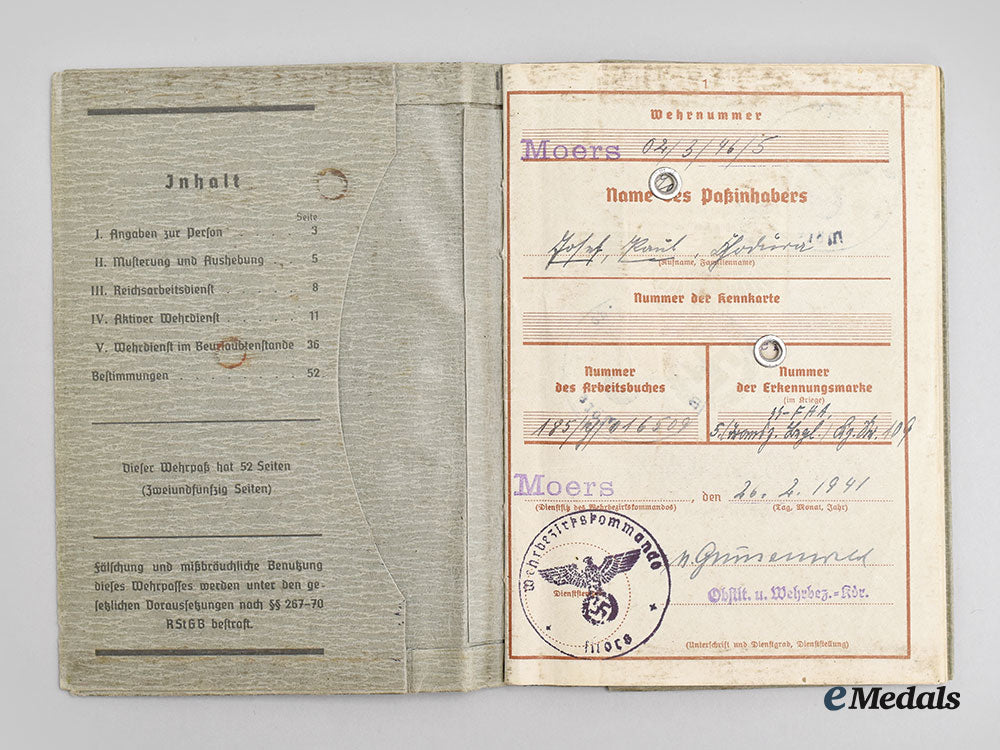 Inhalt
Seite
I. Angaben zur Person . . . . . 3
II. Musterung und Aushebung . . 5
III. Reichsarbeitsdienst . . . . . . 8
IV. Aktiver Wehrdienst . . . . . . 11
V. Wehrdienst im Beurlaubtenstande 36
Bestimmungen . . . . . . . . . 52
Dieser Wehrpaß hat 52 Seiten
(Zweiundfünfzig Seiten)
Fälschung und mißbräuchliche Benutzung
dieses Wehrpasses werden unter den ge-
setzlichen Voraussetzungen nach §§ 267-70
RStGB bestraft.
1
Wehrnummer
Moers 02/3/46/5
Name des Paßinhabers
Josef, Paul,
(Rufname, Familienname)
Nummer der Kennkarte
Nummer
des Arbeitsbuches
Nummer
der Erkennungsmarke
(im Kriege)
SS-FHA
185/ 016509
109
Moers, den 26. 2. 1941
(Dienstsitz des Wehrbezirkskommandos) (Tag, Monat, Jahr)
Wehrbezirkskommando
Moers
v. Grunenwald
Obstlt. u. Wehrbez.-Kdr.
(Unterschrift und Dienstgrad, Dienststellung)
eMedals